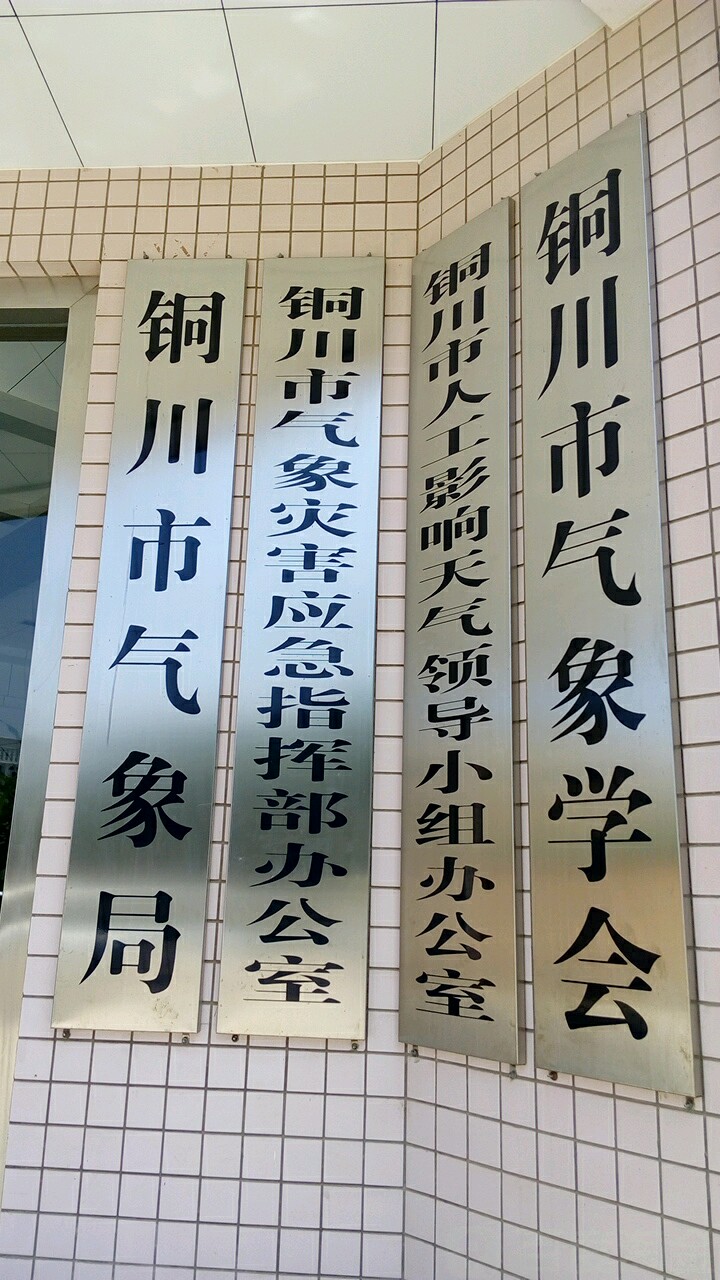 铜川市气象局
铜川市气象灾害应急指挥部办公室
铜川市人工影响天气领导小组办公室
铜川市气象学会